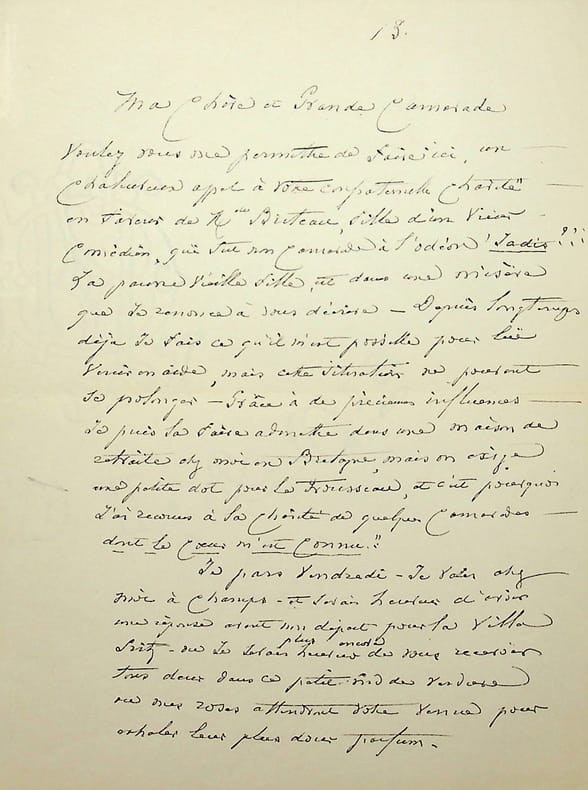 18.
Ma Chère et Grande Camarade
Voulez vous me permettre de faire ici, un
Chaleureux appel à votre confraternelle Charité"
en faveur de Mlle Bruteau, fille d'un Vieux
Comédien, qui fut mon Camarade à l'Odéon! Jadis!!!
La pauvre Vieille fille, est dans une misère
que Je renonce à vous décrire — Depuis longtemps
déjà Je fais ce qu'il m'est possible pour lui
Venir en aide, mais cette situation ne pouvant
se prolonger — Grâce à de précieuses influences —
Je puis la faire admettre dans une maison de
retraite chez moi en Bretagne, mais on exige
une petite dot pour le Trousseau, et c'est pourquoi
J'ai recours à la Charité de quelques Camarades —
dont le Cœur m'est Connu"
Je pars Vendredi — Je vais chez
moi à Champs — et serais heureux d'avoir
une réponse avant mon départ pour la Villa
— où Je serais plus heureux encore de vous recevoir
tous deux dans ce petit nid de verdure
où mes roses attendent votre venue pour
exhaler leur plus doux parfum.